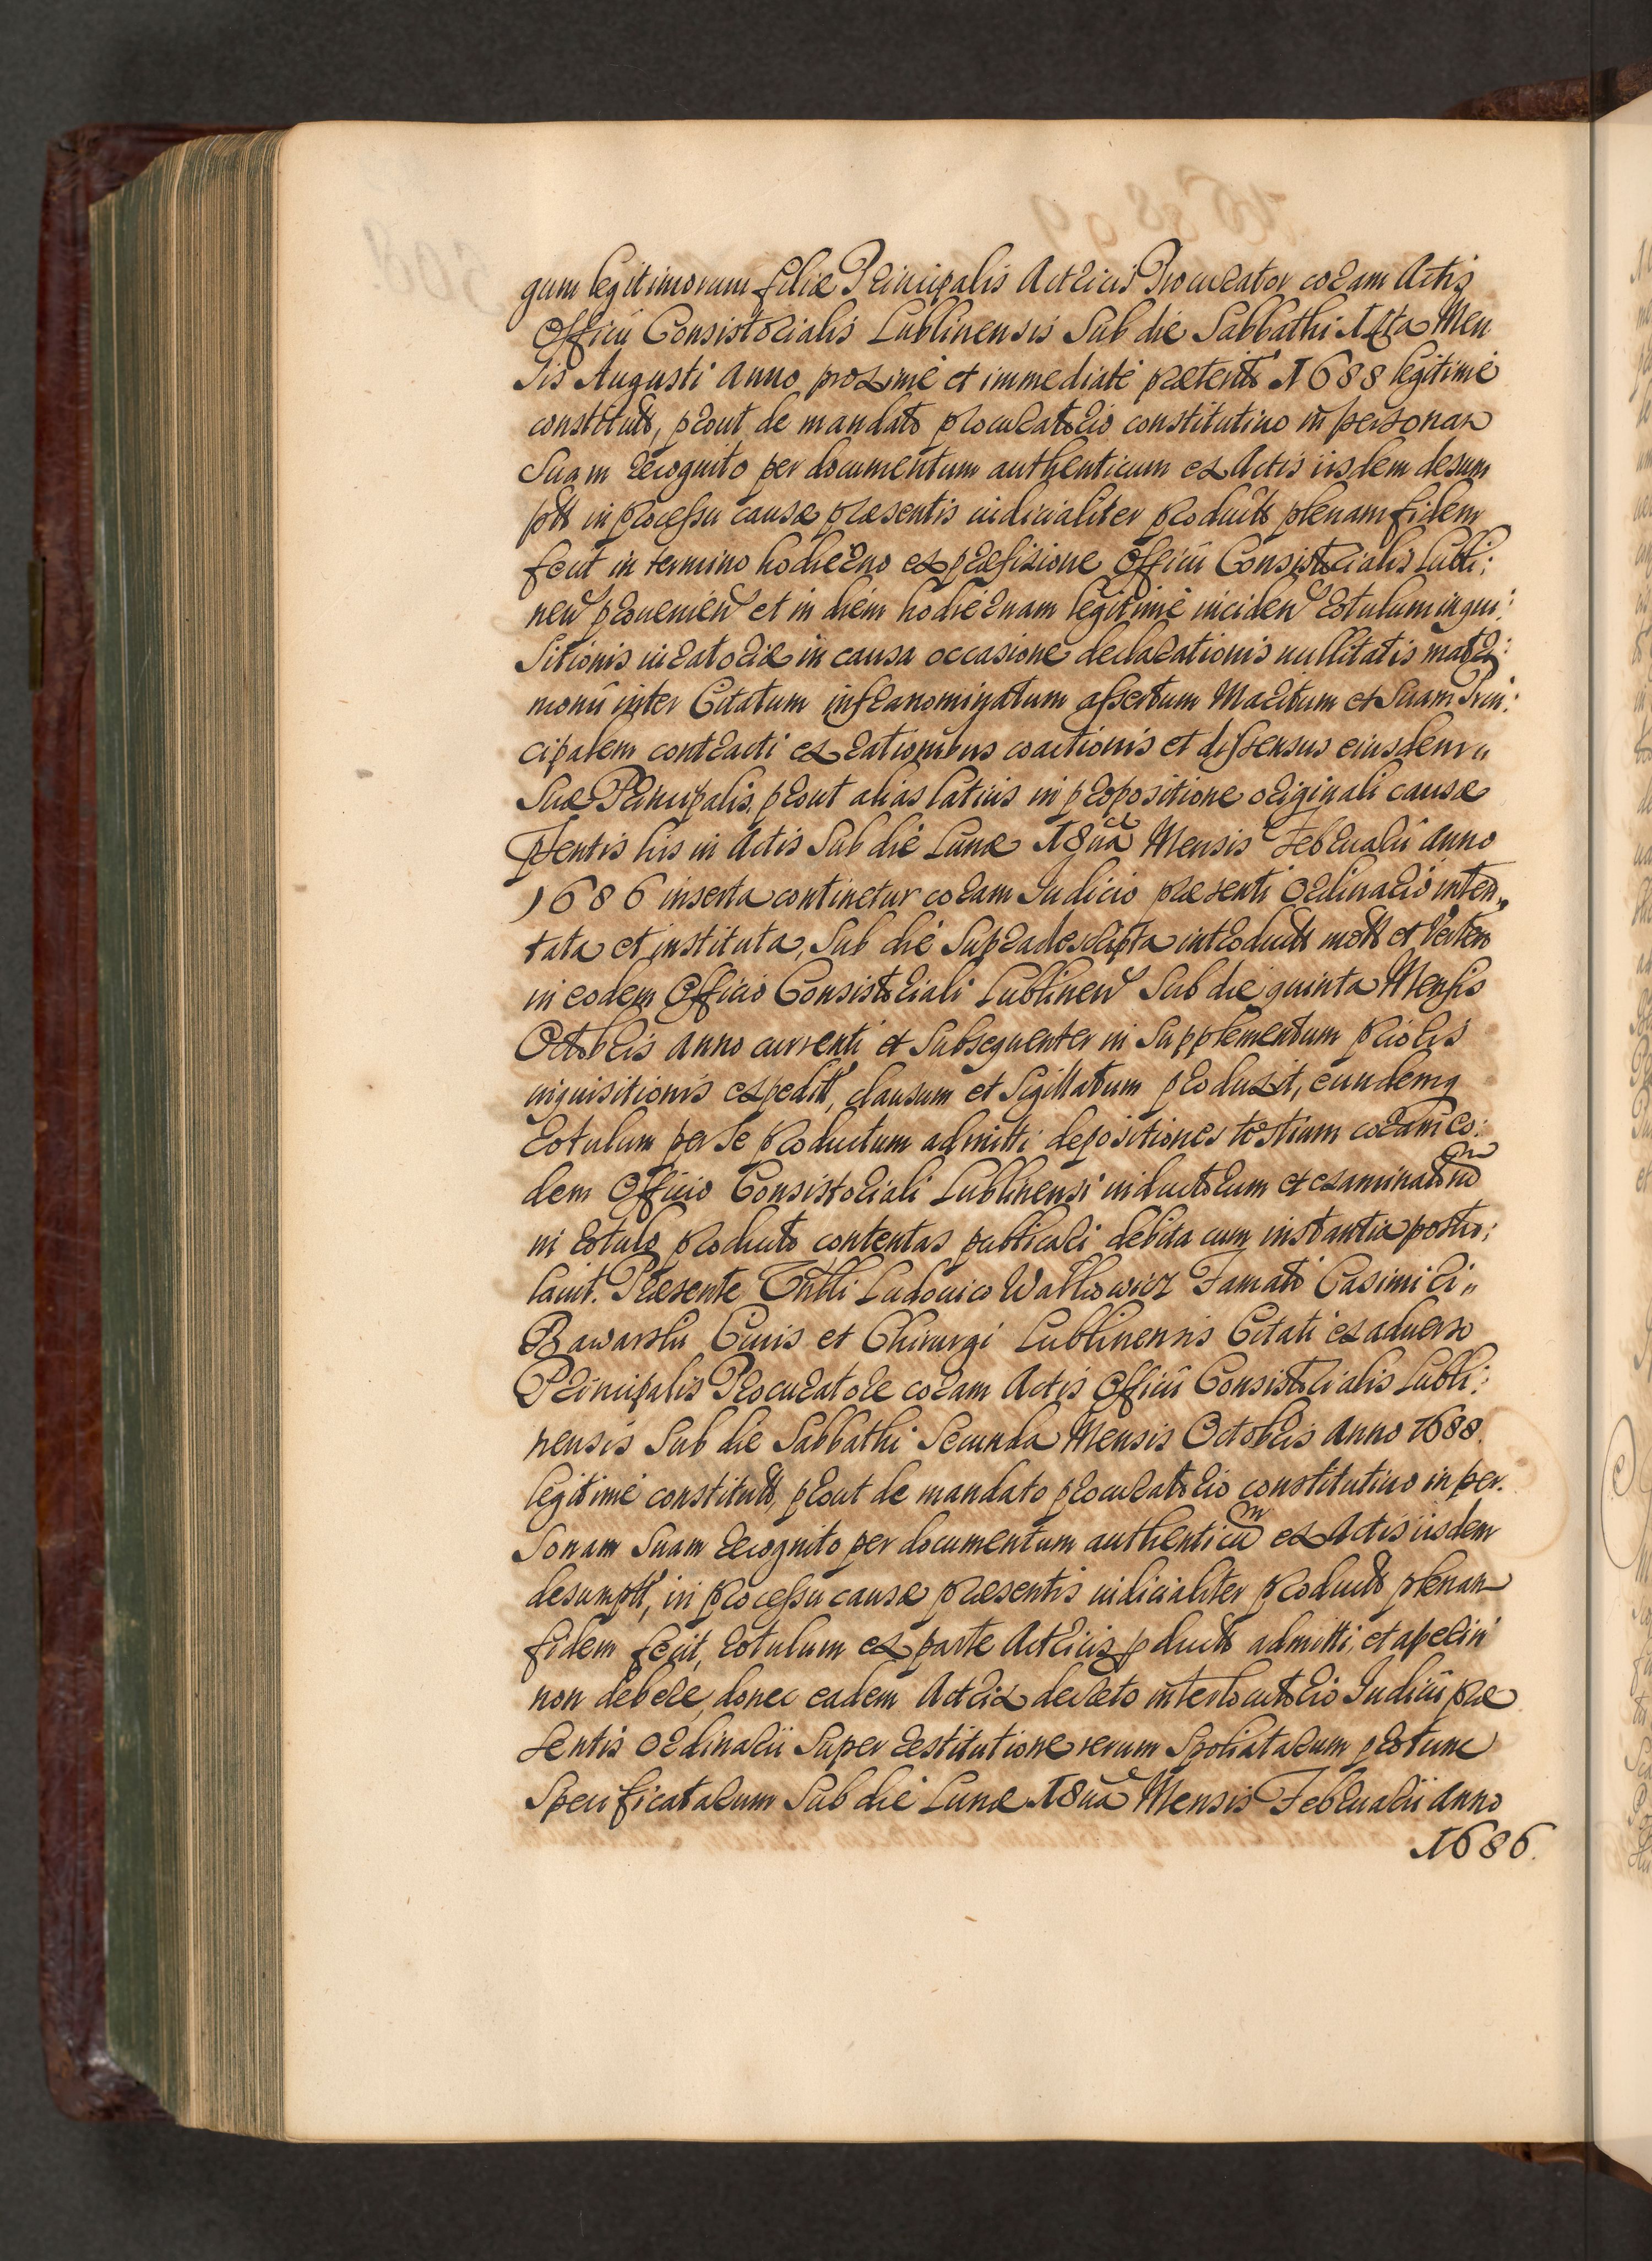 gum legitimorum filiæ Principalis Actricis Procurator coram Actis
Officii Consistorialis Lublinensis Sub die Sabbathi 14ta Men
sis Augusti Anno proxime et immediate præterito 1688 legitime
constitutus, prout de mandato procuratorio constitutivo in personam
Suam recognito per documentum authenticum ex Actis iisdem desum
ptt in processu causæ præsentis iudicialiter producto plenam fidem
fecit in termino hodierno ex præfixione Officii Consistorialis Lubli:
nen provenien et in diem hodiernam legitime inciden rotulum inqui:
Sitionis iuratoriæ in causa occasione declarationis nullitatis matri:
monii inter Citatum infranominatum assertum Maritum et Suam Prin:
cipalem contracti ex rationibus coactionis et dissensus eiusdem „
Suæ Principalis, prout alias latius in propositione originali causæ
pñtentis his in Actis Sub die Lunæ 18va Mensis Februarii Anno
1686 inserta continetur coram Iudicio præsenti Ordinario inten„
tata et instituta, Sub die Supradescripta introducto mott et verten
in eodem Officio Consistoriali Lublinen Sub die quinta Mensis
Octobris Anno currenti et Subsequenter in Supplementum prioris
inquisitionis expeditt, clausum et Sigillatum produxit, eundemq
rotulum per se productum admitti depositiones testium coram eo:
dem Officio Consistoriali Lublinensi inductorum et examinatorum
in rotulo producto contentas publicari debita cum instantia postu:
lavit. Præsente Gnlli Ludovico Wallowicz Famati Casimiri „
Bawarsky Civis et Chirurgi Lublinensis Citati ex adverso
Principalis Procuratore coram Actis Officii Consistorialis Lubli:
nensis Sub die Sabbathi Secunda Mensis Octobris Anno 1688.
legitime constituto, prout de mandato procuratorio constitutivo in per.
Sonam Suam recognito per documentum authenticum ex Actis iisdem
desumptt, in processu causæ præsentis iudicialiter producto plenam
fidem fecit, rotulum ex parte Actricis pductt admitti, et aperiri
non debere, donec eadem Actrix decreto interlocutorio Iudicii præ
Sentis Ordinarii Super restitutione rerum Spoliatarum protunc
Specificatarum Sub die Lunæ 18va Mensis Februarii Anno
1686.